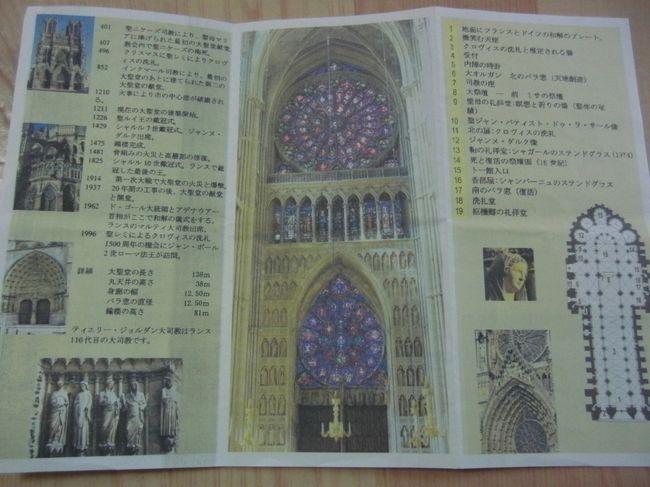 401 聖ニケーズ司教により、聖母マリ
アに捧げられた最初の大聖堂献堂。
407 教会内で聖ニケーズの殉死。
496 クリスマスに聖レミによりクロヴィ
スの洗礼。
852 インクマール司教により、最初の
大聖堂のあとに捨てられた第二の
大聖堂の献堂。
1210 火事により市の中心部が破壊され
る。
1211 現在の大聖堂の建築開始。
1226 聖ルイ王の戴冠式。
1429 シャルル7世戴冠式。ジャンヌ・
ダルク出席。
1475 鐘楼完成。
1481 骨組みの火災と高層部の修復。
1825 シャルル10世戴冠式。ランスで戴
冠した最後の王。
1914 第一次大戦で大聖堂の火災と爆撃。
1937 20年間の工事の後、大聖堂の献堂
と開堂。
1962 ド・ゴール大統領とアデナウアー
首相がここで和解の儀式をする。
ランスのマルティ大司教出席。
1996 聖レミによるクロヴィスの洗礼
1500周年の機会にジャン・ポール
2世ローマ法王が訪問。
詳細 大聖堂の長さ 138m
丸天井の高さ 38m
身廊の幅 12.50m
バラ窓の直径 12.50m
鐘楼の高さ 81m
ティエリー・ジョルダン大司教はランス
110代目の大司教です。
1 地面にフランスとドイツの和解のプレート。
2 微笑む天使
3 クロヴィスの洗礼と推定される場
4 受付
5 内陣の時計
6 大オルガン 北のバラ窓(天地創造)
7 司教の座
8 大祭壇 - 前 ミサの祭壇
9 聖母の礼拝堂:瞑想と祈りの場
10 聖ジャン・バティスト・ドゥ・ラ・サール像
11 北の扉:クロヴィスの洗礼
12 ジャンヌ・ダルク像
13 軸の礼拝堂:シャガールのステンドグラス(1974)
14 死と復活の祭壇画(16世紀)
15 トー館入口
16 各部屋:シャンパーニュのステンドグラス
17 南のバラ窓(復活)
18 洗礼堂
19 枢機卿の礼拝堂